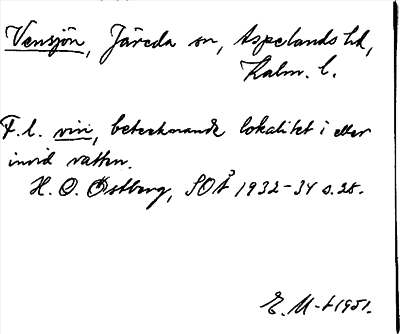 Vensjön, Järeda sn, Aspelands hd,
Kalm. l.
F.l. vin, betecknande lokalitet i eller
invid vatten.
H. O. Östberg, SOÅ 1932-34 s. 28.
E. M-t 1951.